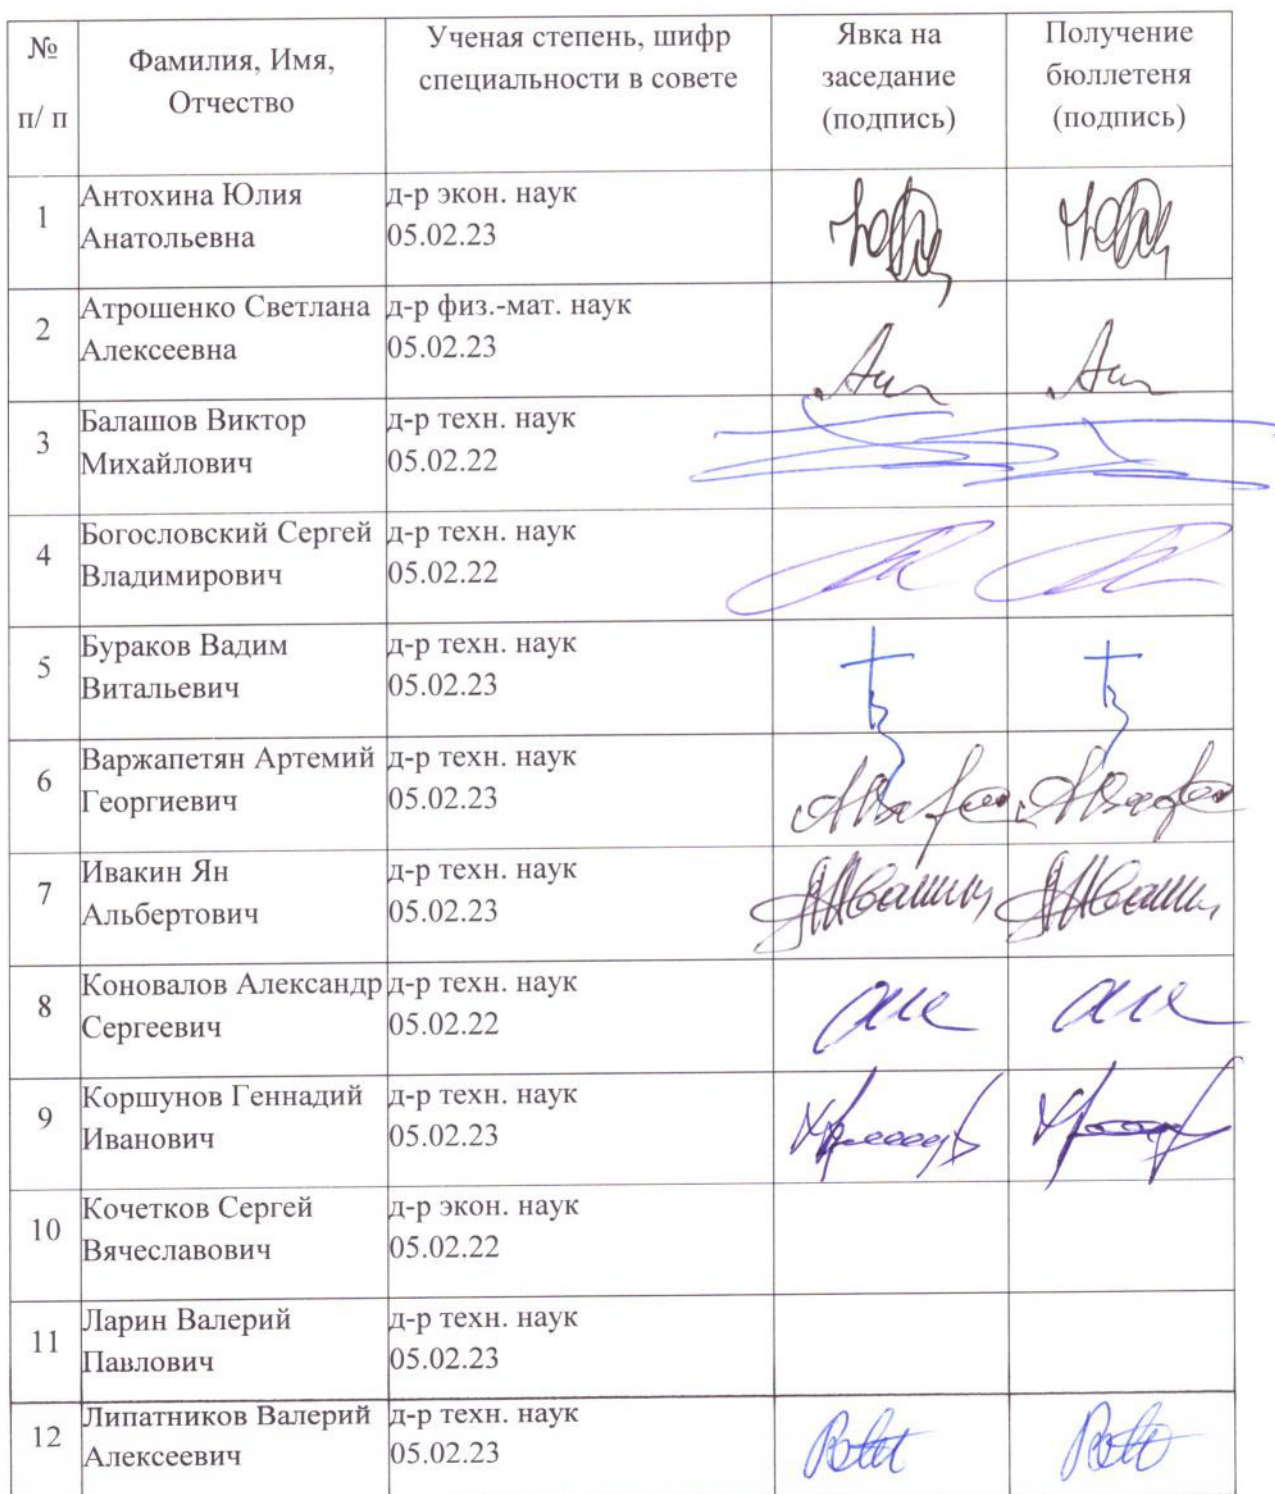 №
п/ п
Фамилия, Имя,
Отчество
Ученая степень, шифр
специальности в совете
Явка на
заседание
(подпись)
Получение
бюллетеня
(подпись)
1
Антохина Юлия
Анатольевна
д-р экон. наук
05.02.23
2
Атрошенко Светлана
Алексеевна
д-р физ.-мат. наук
05.02.23
3
Балашов Виктор
Михайлович
д-р техн. наук
05.02.22
4
Богословский Сергей
Владимирович
д-р техн. наук
05.02.22
5
Бураков Вадим
Витальевич
д-р техн. наук
05.02.23
6
Варжапетян Артемий
Георгиевич
д-р техн. наук
05.02.23
7
Ивакин Ян
Альбертович
д-р техн. наук
05.02.23
8
Коновалов Александр
Сергеевич
д-р техн. наук
05.02.22
9
Коршунов Геннадий
Иванович
д-р техн. наук
05.02.23
10
Кочетков Сергей
Вячеславович
д-р экон. наук
05.02.22
11
Ларин Валерий
Павлович
д-р техн. наук
05.02.23
12
Липатников Валерий
Алексеевич
д-р техн. наук
05.02.23